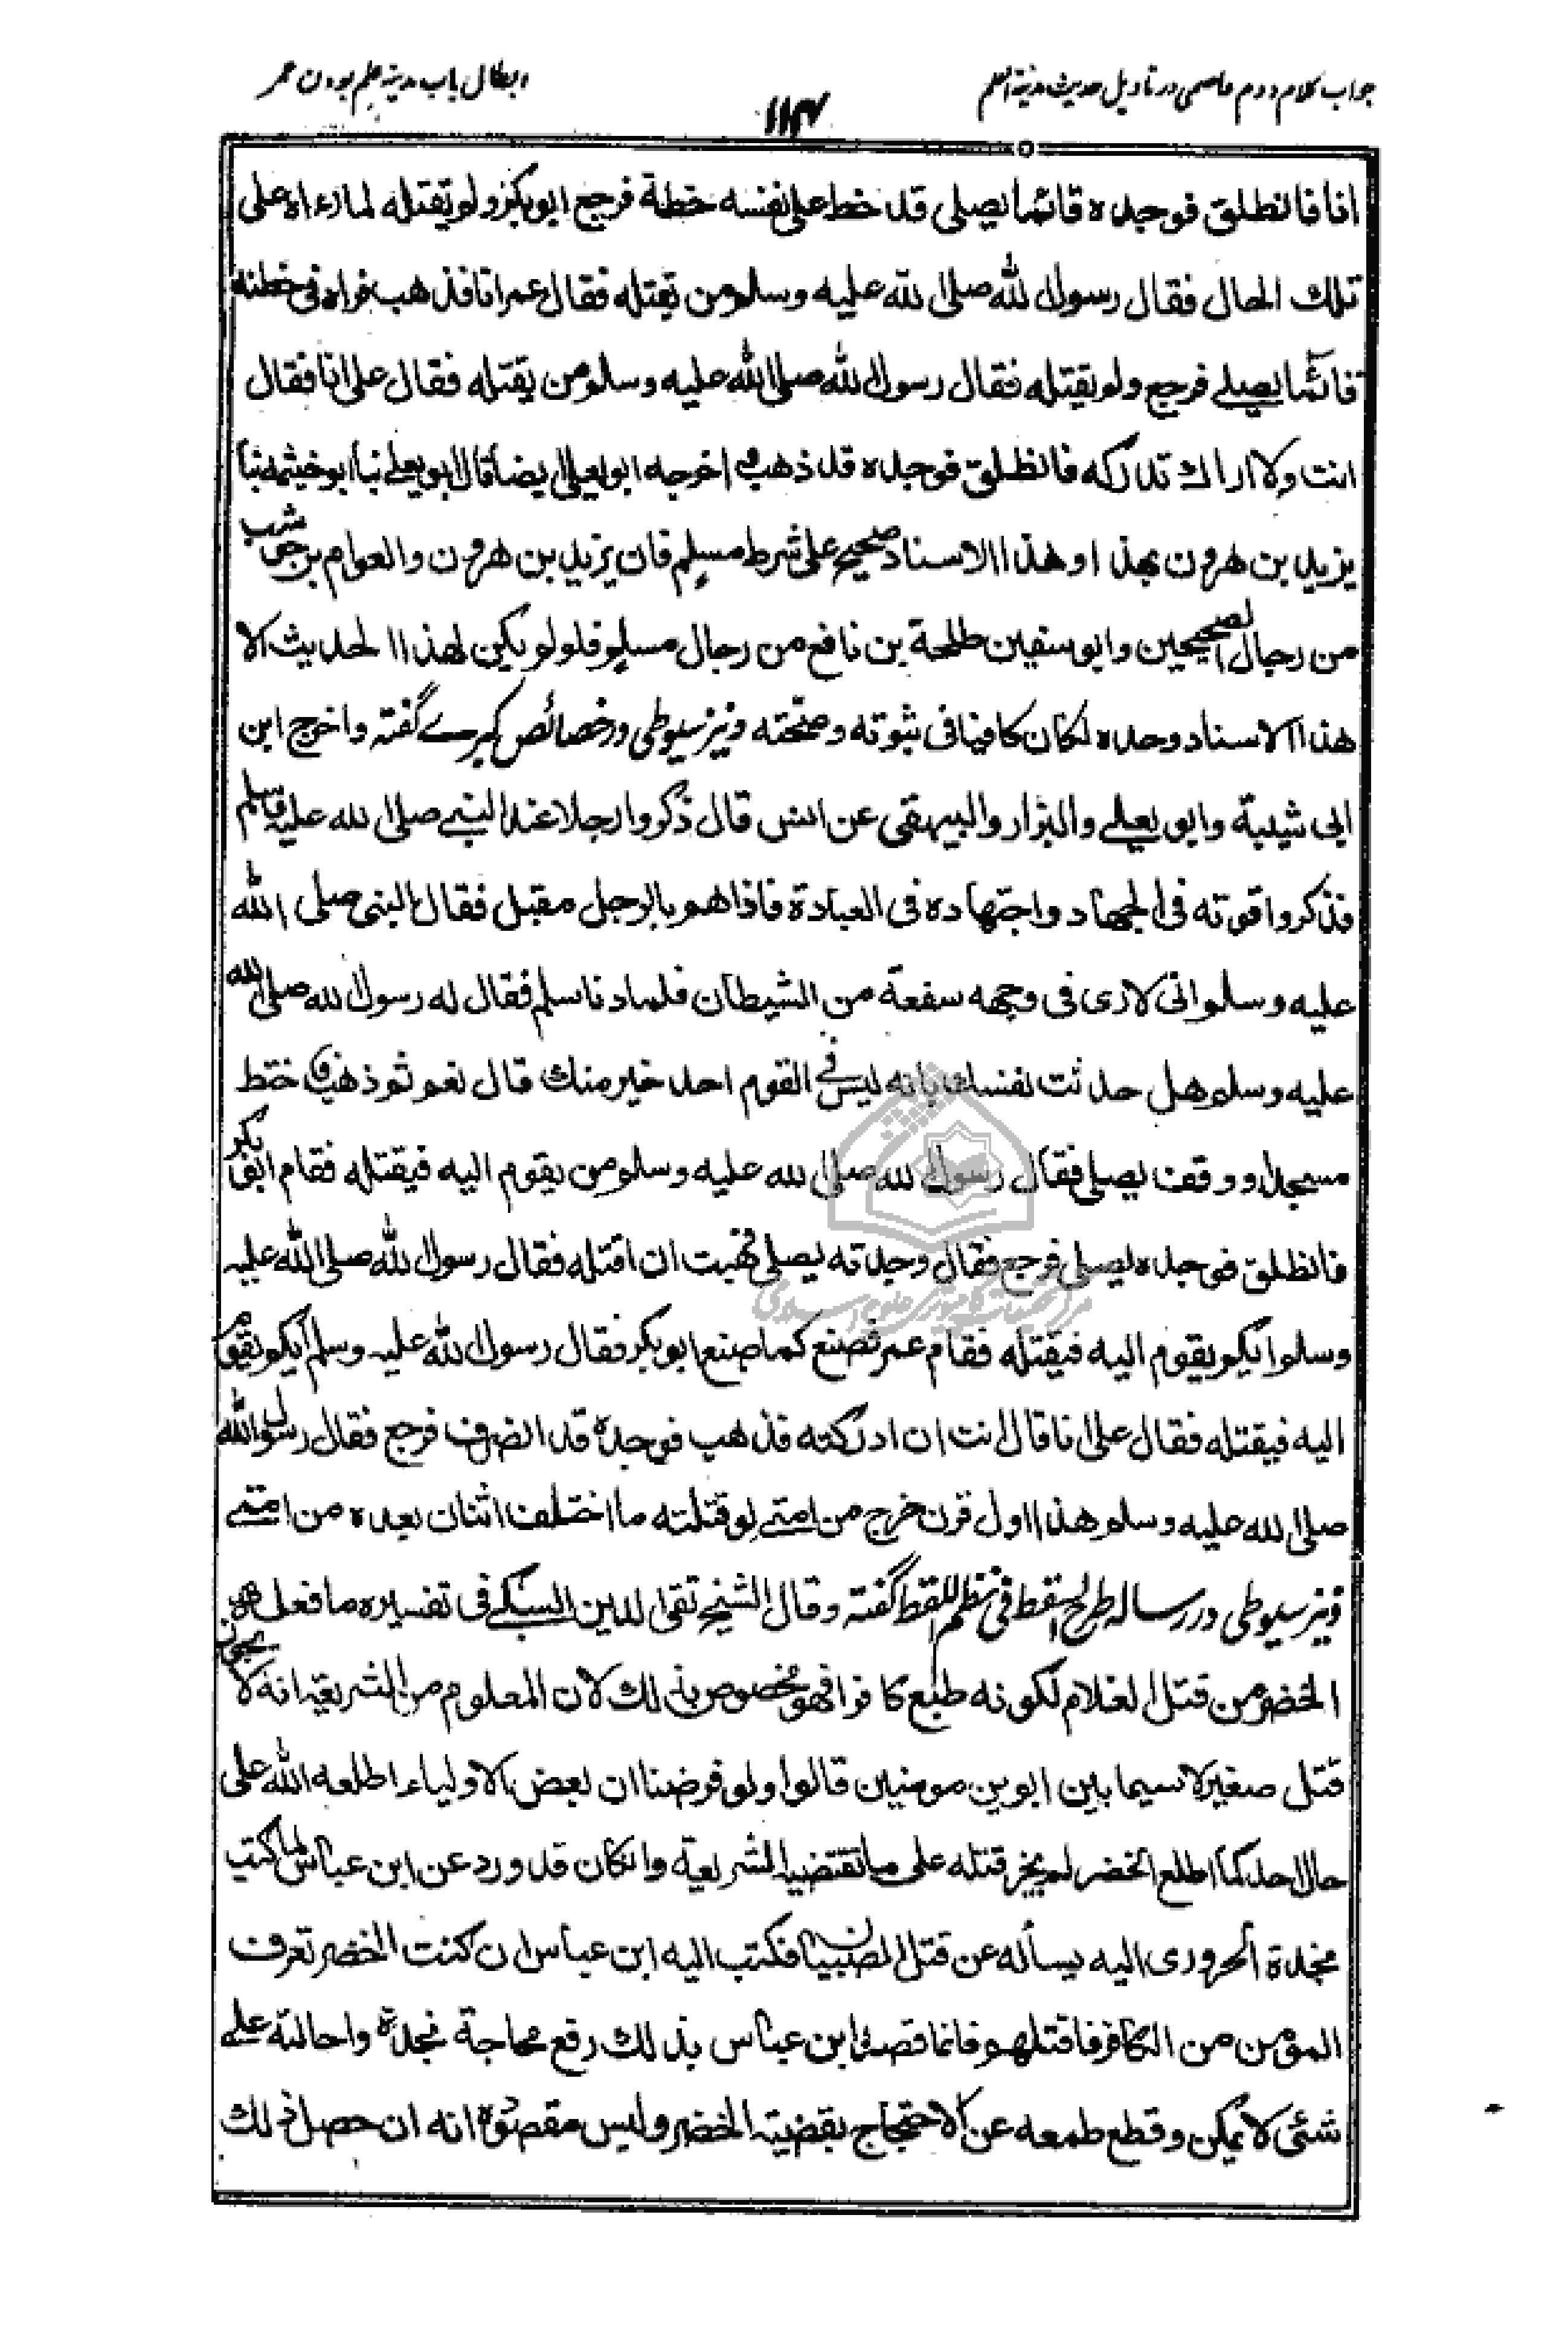 جواب کلام دوم عاصمی در تاویل حدیث مدینة العلم
ابطال باب مدینه علم بودن عمر
۱۱۴
انا فانطلق فوجده قائما يصلى قد خط على نفسه خطة فرجع ابو بكر ولم يقتله لما رءاه على
تلك الحال فقال رسول الله صلى الله عليه وسلم من يقتله فقال عمر انا فذهب فراه فى خطته
قائما يصلے فرجع ولم يقتله فقال رسول الله صلى الله عليه وسلم من يقتله فقال على انا فقال
انت ولا اراك تدركه فانطلق فوجده قد ذهب و اخرجه ابو يعلى ايضا قال ابو يعلے نبأ ابو خيثمة نبأ
يزيد بن هرون بهذا و هذا الاسناد صحيح على شرط مسلم فان يزيد بن هرون والعوام بن حوشب
من رجال الصحيحين وابو سفين طلحة بن نافع من رجال مسلم فلو لم يكن لهذا الحديث الا
هذا الاسناد وحده لكان كافيا فى ثبوته وصحته ونیز سیوطی در خصائص کبرے گفته واخرج ابن
ابى شيبة وابو يعلے والبزار والبيهقى عن انس قال ذكروا رجلا عند النبے صلى الله عليه وسلم
فذكروا قوته فى الجهاد واجتهاده فى العبادة فاذا هو بالرجل مقبل فقال النبى صلى الله
عليه وسلم انى لارى فى وجهه سفعة من الشيطان فلما دنا سلم فقال له رسول الله صلى الله
عليه وسلم هل حدثت نفسك بانه ليس فى القوم احد خير منك قال نعم ثم ذهب و اختط
مسجدا و وقف يصلى فقال رسول الله صلى الله عليه وسلم من يقوم اليه فيقتله فقام ابو بكر
فانطلق فوجده يصلى فرجع فقال وجدته يصلى فهبت ان اقتله فقال رسول الله صلى الله عليه
وسلم ايكم يقوم اليه فيقتله فقام عمر فصنع كما صنع ابو بكر فقال رسول الله عليه وسلم ايكم يقوم
اليه فيقتله فقال على انا قال انت ان ادركته فذهب فوجده قد انصرف فرجع فقال رسول الله
صلى الله عليه وسلم هذا اول قرن خرج من امتے لو قتلته ما اختلف اثنان بعده من امتے
ونیز سیوطی در رساله طرح السقط فی نظم اللقط گفته وقال الشيخ تقى الدين السبكے فى تفسيره ما فعله
الخضر من قتل الغلام لكونه طبع كافرا فهو مخصوص بذلك لان المعلوم من الشريعة انه لا يجوز
قتل صغير لا سيما بين ابوين مومنين قالوا ولو فرضنا ان بعض الاولياء اطلعه الله على
حال احد كما اطلع الخضر لم يجز قتله على ما تقتضيه الشريعة وانكان قد ورد عن ابن عباس لما كتب
نجدة الحرورى اليه يسأله عن قتل الصبيان فكتب اليه ابن عباس ان كنت الخضر تعرف
المؤمن من الكافر فاقتلهم فانما قصد ابن عباس بذلك رفع محاجة نجدة واحالته على
شئى لا يمكن وقطع طمعه عن الاحتجاج بقضية الخضر وليس مقصوده انه ان حصل ذلك